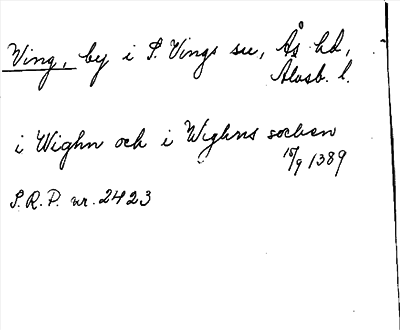 Ving, by i S. Vings sn, Ås hd,
Älvsb. l.
i Wighn och i Wighns sochen
15/9 1389
S.R.P. nr. 2423